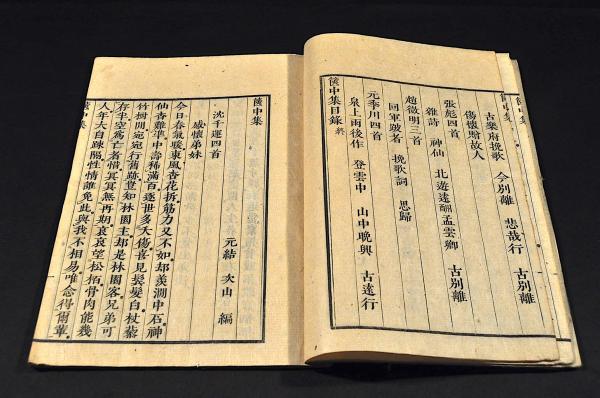 篋中集
古樂府挽歌 今別離 悲哉行 古別離
傷懷贈故人
張彪四首
雜詩 神仙 北遊還酬孟雲卿 古別離
趙微明三首
回軍跛者 挽歌詞 思歸
元季川四首
泉上雨後作 登雲中 山中晚興 古遠行
篋中集目錄 終
篋中集
元結 次山 編
沈千運四首
感懷弟妹
今日春氣暖東風杏花拆筋力又不如却羨澗中石神
仙杳難準中壽稀滿百逐世多夭傷喜見長髮白杖藜
竹樹間宛宛行舊跡豈知林園主却是林園客兄弟可
存半空爲亡者惜冥冥無再期哀哀望松栢骨肉能幾
人年大自踈隔性情誰免此與我不相易唯念得爾輩
篋中集